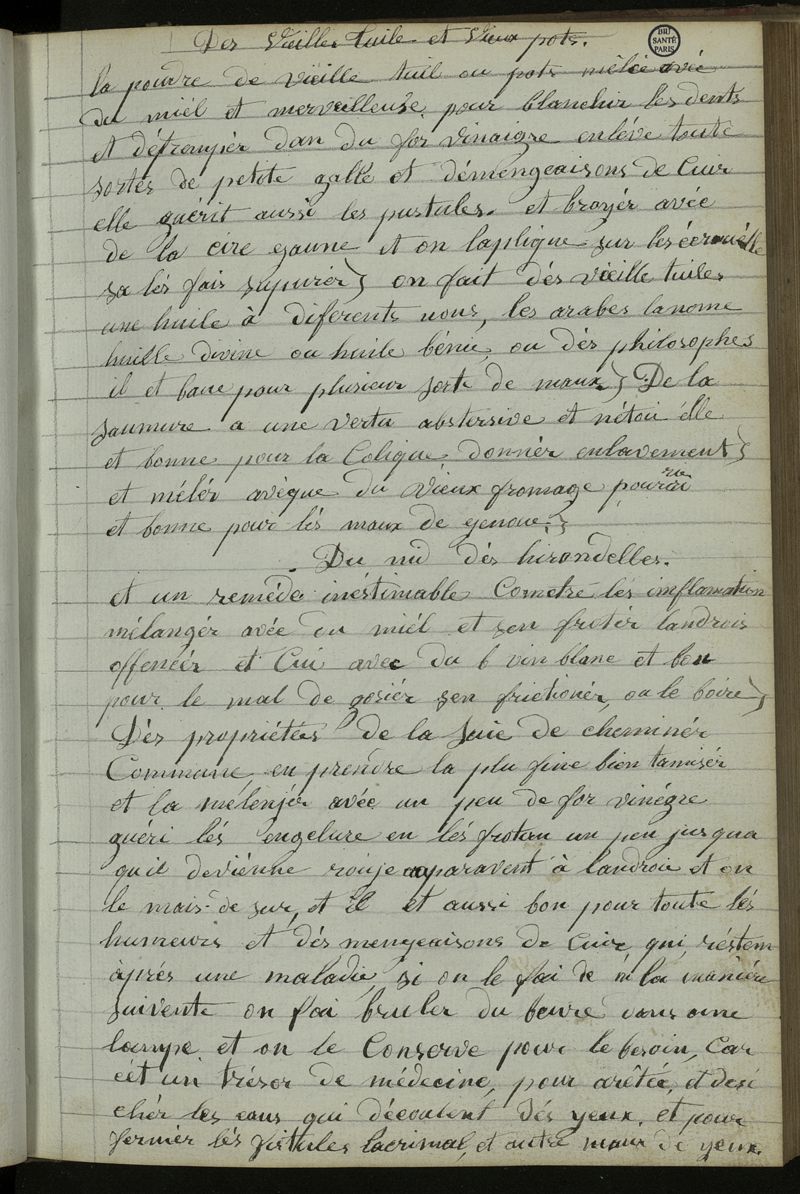 Des Vieille tuile et Vieux pots.
BIU
SANTÉ
PARIS
la poudre de vieille tuil ou pots mêlée avée
du miél et merveilleuse pour blanchir les dents
et détrempér dan du for vinaigre enléve toute
sortes de petite galle et démengeaisons de Cuir
elle guérit aussi les pustules. et broyér avée
de la cire gaune et on laplique sur les écrouélle
sa lés fais supurér) on fait dés vieille tuiles
une huile à diferents nous, les arabes lanome
huille divine ou huile bénie, ou dés philosophes
il et bone pour plusieur sorte de maux) De la
saumure a une vertu abstersive et nétoie élle
et bonne pour la Colique donnér enlavement)
et mélér avèque du vieux fromage pourri
et bonne pour lés maux de genoue.)
Du nid dés hirondelles.
et un reméde inéstimable Contre lés imflamation
mélangér avée du miél et sen frotér landrois
offencér et Cui avec du b vin blanc et bon
pour le mal de gosiér sen frictionér, ou le boire)
Dés propriétées de la Suie de cheminér
Commune, en prendre la plu fine bien tamisér
et la mélenjér avée un peu de for vinégre
guéri lés engelure en lés frotan un peu jusqua
qu il deviénne rouje auparavent à landroie et on
le mais de sur, et il et aussi bon pour toute lés
humeurs et dés mengeaisons de Cuir qui réstem
àprés une maladie, si on le fai de la maniére
suivente on fai bruler du beure dans une
lampe et on le Conserve pour le besoin, Car
cét un trésor de médecine, pour arêtée, et desé
chér les eaus qui découlent dés yeux, et pour
fermér lés fistules lacrimal, et autre maux de yeux.